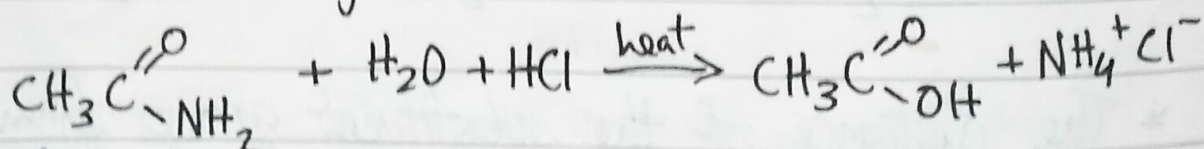 CH₃C(=O)NH₂ + H₂O + HCl →(heat) CH₃C(=O)OH + NH₄⁺Cl⁻